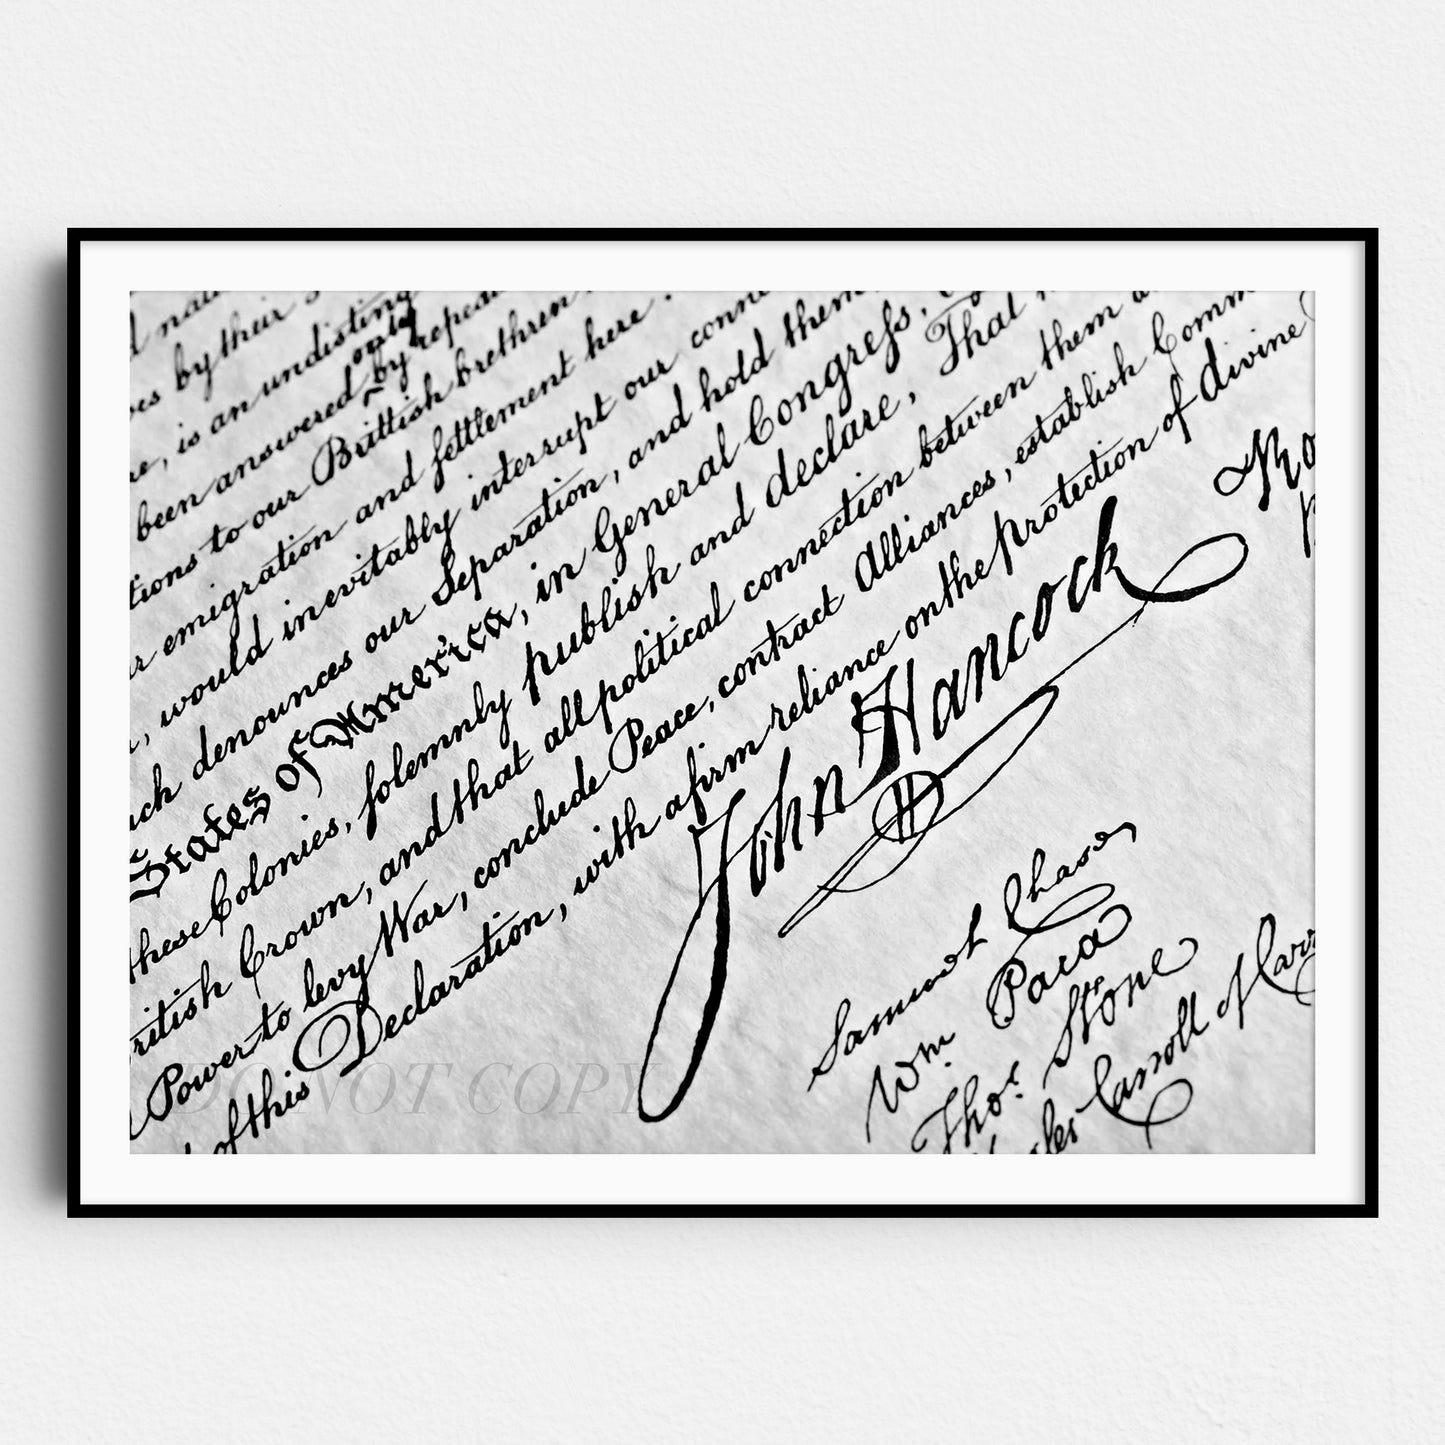 by their
is an undisting
only
been answered by repea
tions to our Brittish brethren
emigration and ſettlement here.
, would inevitably interrupt our conn
ch denounces our Separation, and hold them
States of America, in General Congreſs,
these Colonies, ſolemnly publish and declare, That
ritish Crown, and that all political connection between them
Power to levy War, conclude Peace, contract Alliances, establish Comm
of this Declaration, with a firm reliance on the protection of divine
John Hancock
Samuel Chase
Wm. Paca
Thos. Stone
les Carroll of Carr
DO NOT COPY